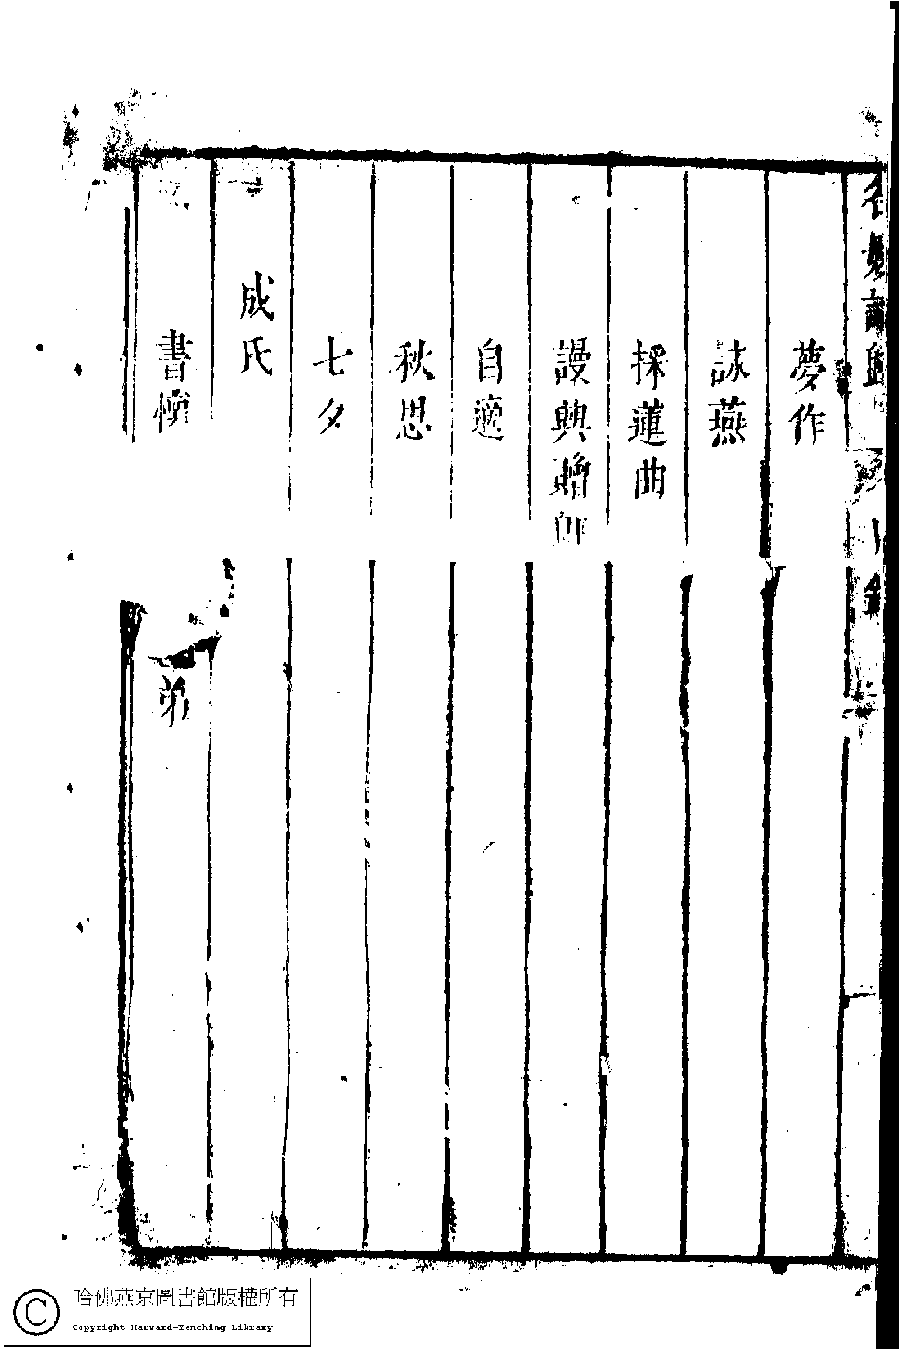 名媛詩歸
目錄
夢作
詠燕
採蓮曲
謾興贈師
自適
秋思
七夕
成氏
書懷
弟
哈佛燕京圖書館版權所有
Copyright Harvard-Yenching Library